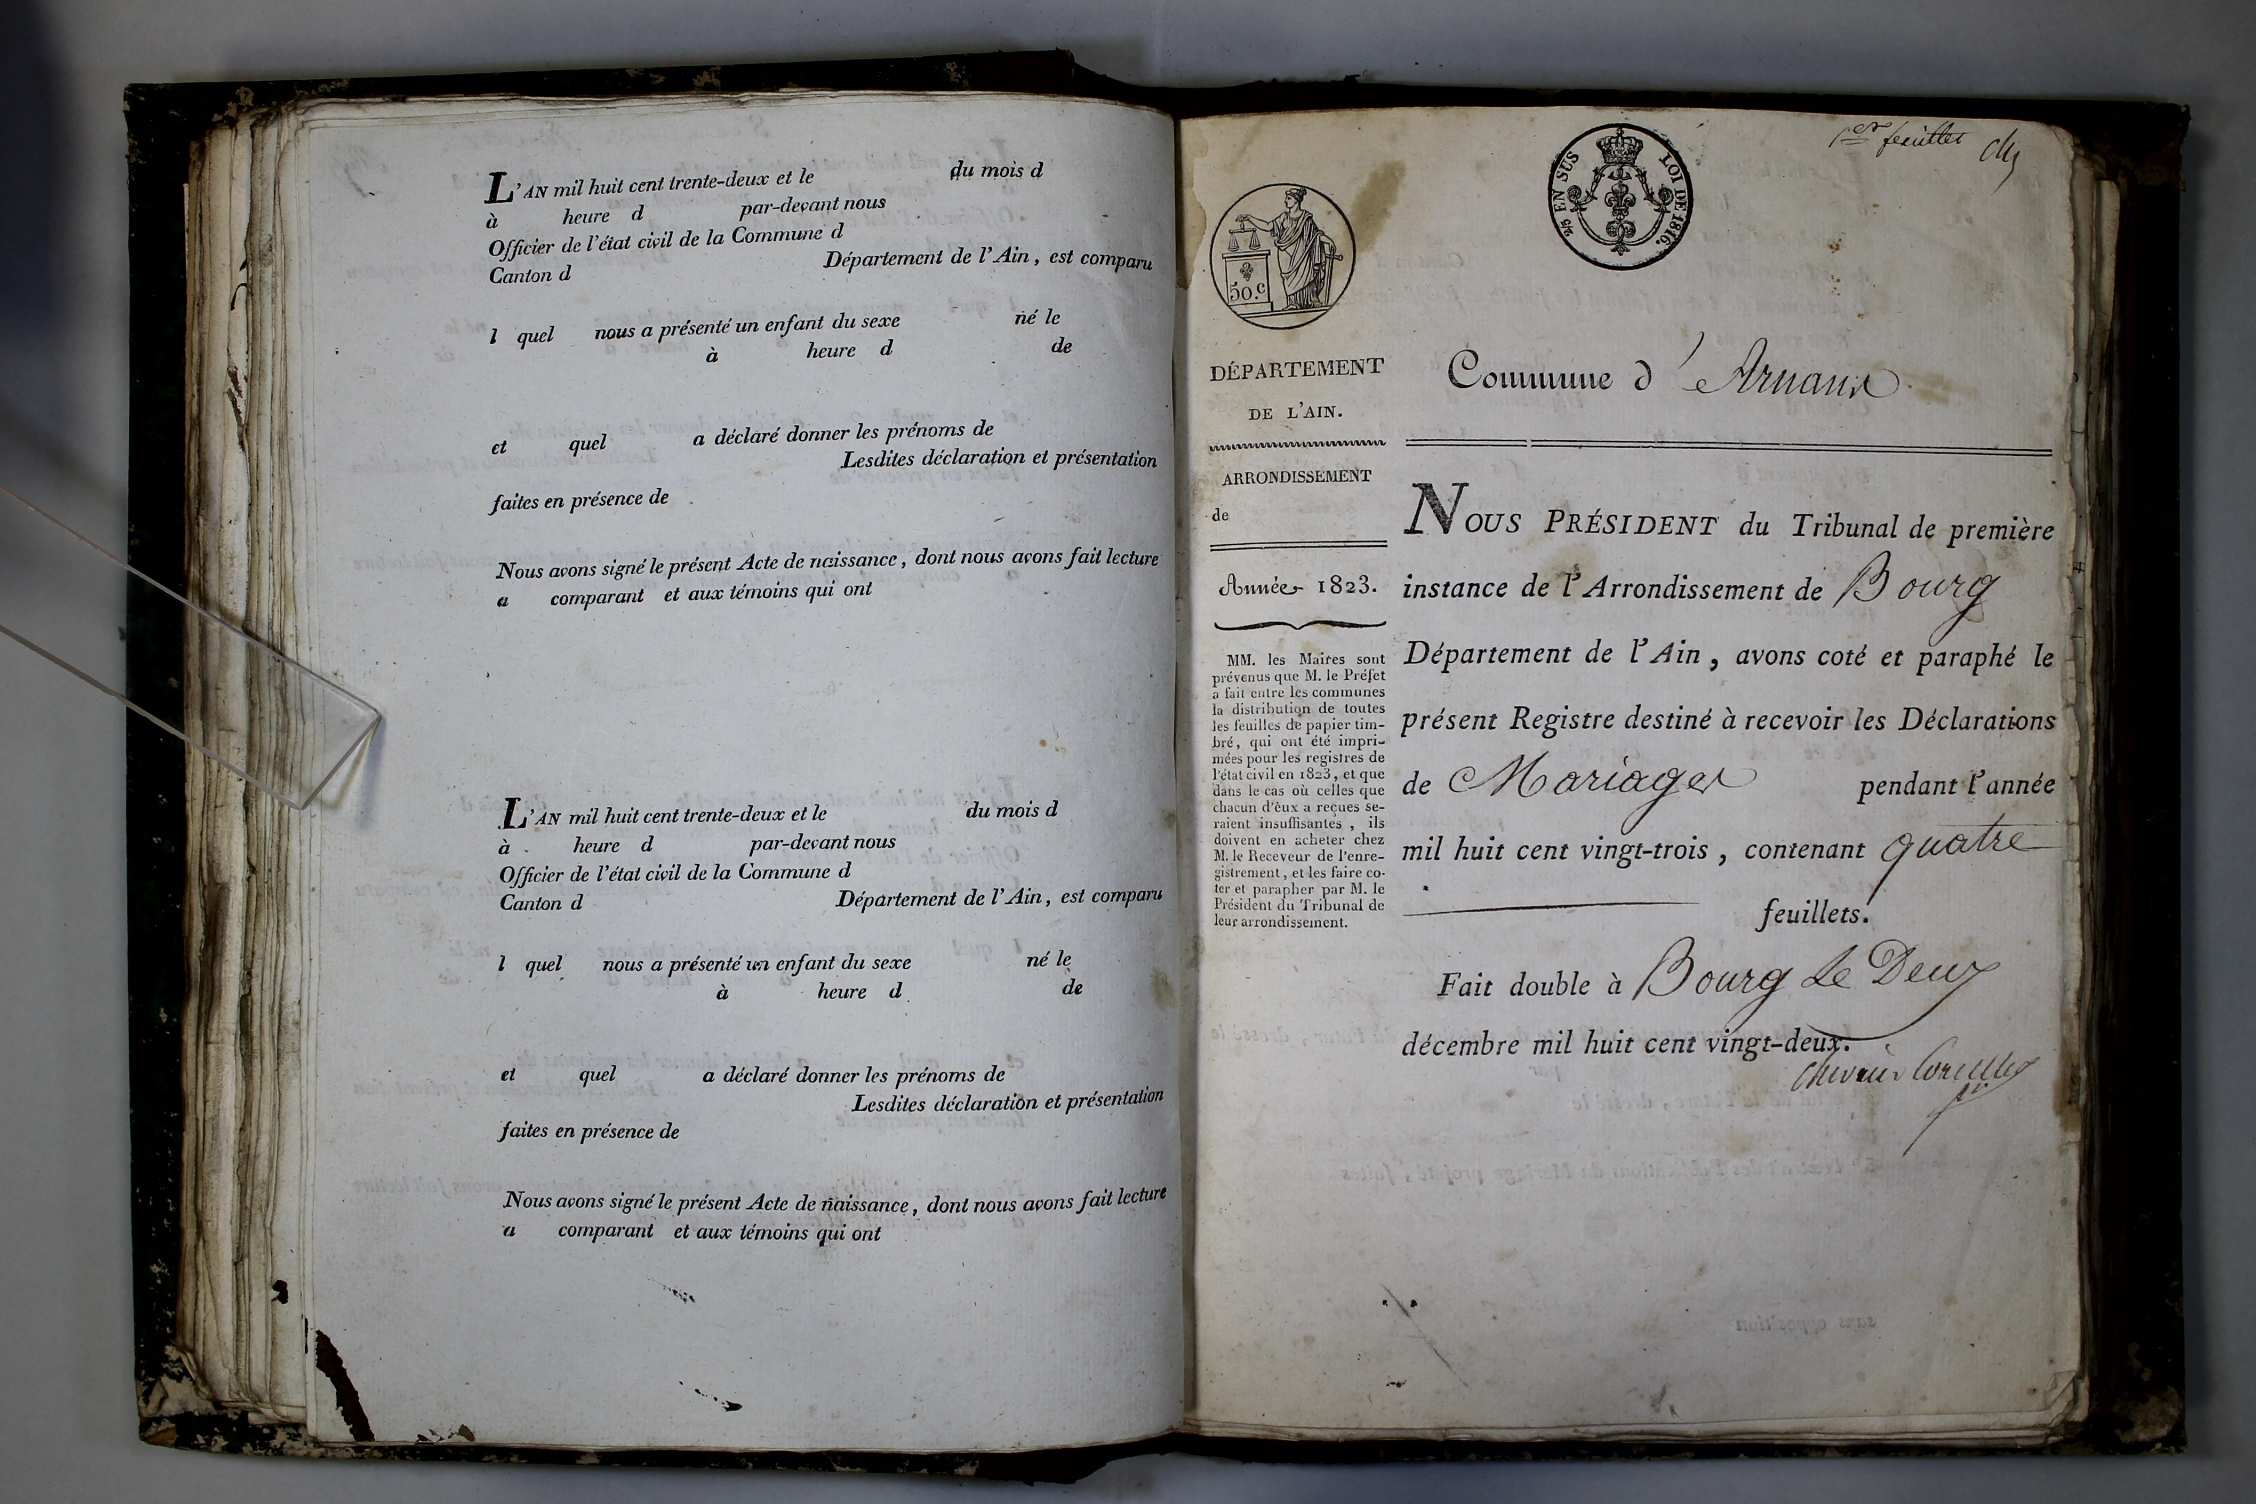 L'AN mil huit cent trente-deux et le du mois d
à heure d par-devant nous
Officier de l'état civil de la Commune d
Canton d Département de l'Ain, est comparu
l quel nous a présenté un enfant du sexe né le
à heure d de
et quel a déclaré donner les prénoms de
Lesdites déclaration et présentation
faites en présence de
Nous avons signé le présent Acte de naissance, dont nous avons fait lecture
a comparant et aux témoins qui ont
L'AN mil huit cent trente-deux et le du mois d
à heure d par-devant nous
Officier de l'état civil de la Commune d
Canton d Département de l'Ain, est comparu
l quel nous a présenté un enfant du sexe né le
à heure d de
et quel a déclaré donner les prénoms de
Lesdites déclaration et présentation
faites en présence de
Nous avons signé le présent Acte de naissance, dont nous avons fait lecture
a comparant et aux témoins qui ont
1er feuillet
EN SUS LOI DE 1816.
50.c
DÉPARTEMENT
DE L'AIN.
ARRONDISSEMENT
de
Année 1823.
MM. les Maires sont
prévenus que M. le Préfet
a fait entre les communes
la distribution de toutes
les feuilles de papier tim-
bré, qui ont été impri-
mées pour les registres de
l'état civil en 1823, et que
dans le cas où celles que
chacun d'eux a reçues se-
raient insuffisantes, ils
doivent en acheter chez
M. le Receveur de l'enre-
gistrement, et les faire co-
ter et parapher par M. le
Président du Tribunal de
leur arrondissement.
Commune d'Arnans
NOUS PRÉSIDENT du Tribunal de première
instance de l'Arrondissement de Bourg
Département de l'Ain, avons coté et paraphé le
présent Registre destiné à recevoir les Déclarations
de Mariages pendant l'année
mil huit cent vingt-trois, contenant quatre
feuillets.
Fait double à Bourg Le Deux
décembre mil huit cent vingt-deux.